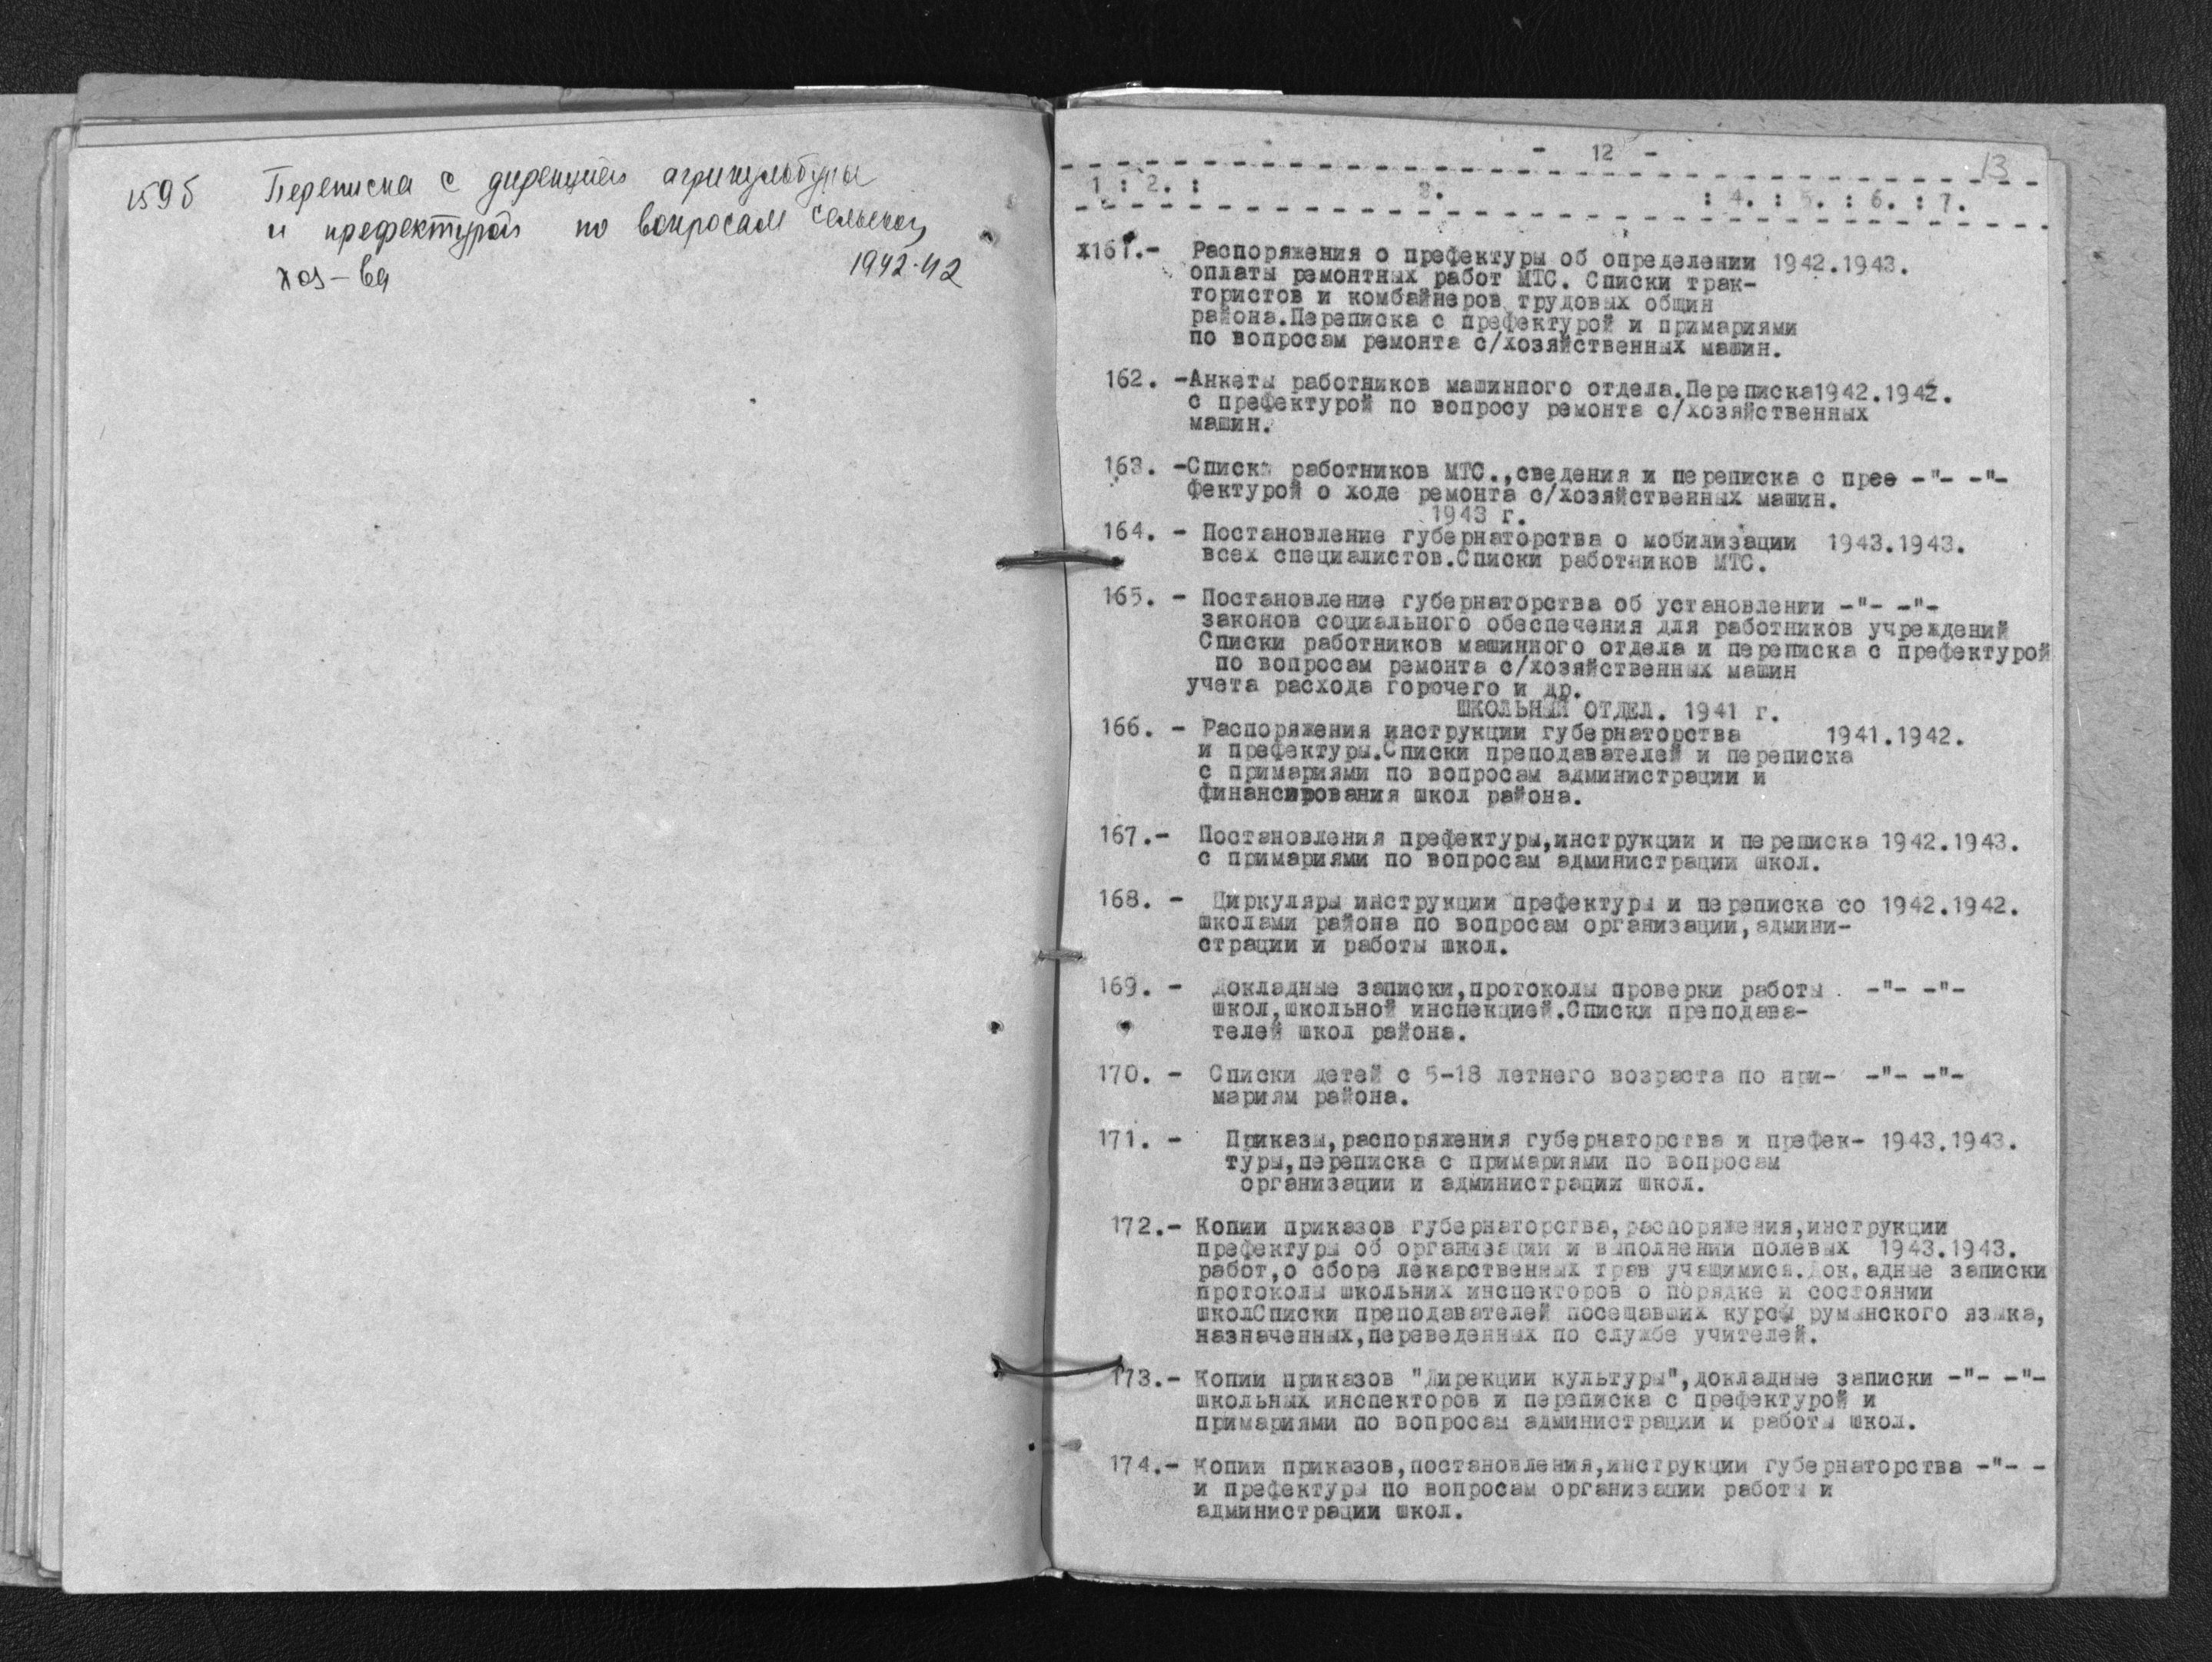 159б Переписка с дирекцией агрикультуры
и префектурой по вопросам сельского
хоз-ва 1942-42
- 12 -
13
1 : 2. : 3. : 4. : 5. : 6. : 7.
х161.- Распоряжения о префектуры об определении 1942.1943.
оплаты ремонтных работ МТС. Списки трак-
тористов и комбайнеров трудовых общин
района.Переписка с префектурой и примариями
по вопросам ремонта с/хозяйственных машин.
162. -Анкеты работников машинного отдела.Переписка1942.1942.
с префектурой по вопросу ремонта с/хозяйственных
машин.
163. -Списки работников МТС.,сведения и переписка с прее -"- -"-
фектурой о ходе ремонта с/хозяйственных машин.
1943 г.
164. - Постановление губернаторства о мобилизации 1943.1943.
всех специалистов.Списки работников МТС.
165. - Постановление губернаторства об установлении -"- -"-
законов социального обеспечения для работников учреждений
Списки работников машинного отдела и переписка с префектурой
по вопросам ремонта с/хозяйственных машин
учета расхода горючего и др.
ШКОЛЬНЫЙ ОТДЕЛ. 1941 г.
166. - Распоряжения инструкции губернаторства 1941.1942.
и префектуры.Списки преподавателей и переписка
с примариями по вопросам администрации и
финансирования школ района.
167.- Постановления префектуры,инструкции и переписка 1942.1943.
с примариями по вопросам администрации школ.
168. - Циркуляры инструкции префектуры и переписка со 1942.1942.
школами района по вопросам организации,админи-
страции и работы школ.
169. - Докладные записки,протоколы проверки работы -"- -"-
школ,школьной инспекцией.Списки преподава-
телей школ района.
170. - Списки детей с 5-18 летнего возраста по при- -"- -"-
мариям района.
171. - Приказы,распоряжения губернаторства и префек- 1943.1943.
туры,переписка с примариями по вопросам
организации и администрации школ.
172.- Копии приказов губернаторства,распоряжения,инструкции
префектуры об организации и выполнении полевых 1943.1943.
работ,о сборе лекарственных трав учащимися.Докладные записки
протоколы школьних инспекторов о порядке и состоянии
школСписки преподавателей посещавших курсы румынского языка,
назначенных,переведенных по службе учителей.
173.- Копии приказов "Дирекции культуры",докладные записки -"- -"-
школьных инспекторов и переписка с префектурой и
примариями по вопросам администрации и работы школ.
174.- Копии приказов,постановления,инструкции губернаторства -"- -
и префектуры по вопросам организации работы и
администрации школ.